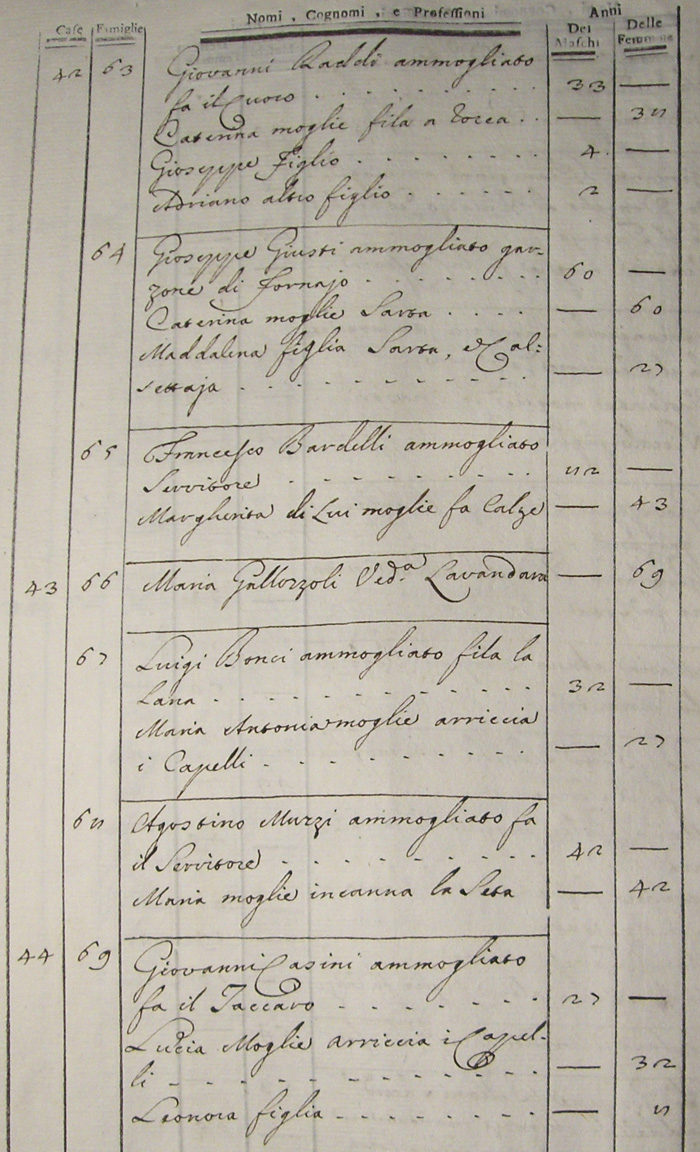 Nomi, Cognomi, e Professioni
Anni
Case Famiglie Dei Maschi Delle Femmine
42 63 Giovanni Raddi ammogliato
fa il Cuoco . . . . . . . . . 33 —
Caterina moglie fila a Rocca . . — 38
Gioseppe Figlio . . . . . . . 4 —
Adriano altro figlio . . . . . . 2 —
64 Gioseppe Giusti ammogliato gar-
zone di Fornajo . . . . . . . . 60 —
Caterina moglie Sarta . . . . — 60
Maddalena figlia Sarta, e Cal=
settaja . . . . . . . . . . — 27
65 Francesco Bardelli ammogliato
Servitore . . . . . . . . . 82 —
Margherita di Lui moglie fa Calze — 43
43 66 Maria Gallozzoli Ved.a Lavandara — 69
67 Luigi Bonci ammogliato fila la
Lana . . . . . . . . . . . 32 —
Maria Antonia moglie arriccia
i Capelli . . . . . . . . . — 27
68 Agostino Muzzi ammogliato fa
il Servitore . . . . . . . . . 42 —
Maria moglie incanna la Seta — 42
44 69 Giovanni Casini ammogliato
fa il Taccaro . . . . . . . 27 —
Lucia Moglie arriccia i Capel-
li . . . . . . . . . . . . — 32
Leonora figlia . . . . . . . — 8